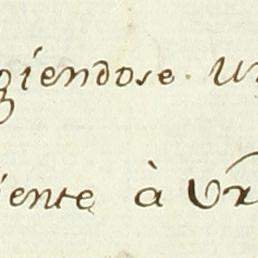 giendose. U
iente à Vr